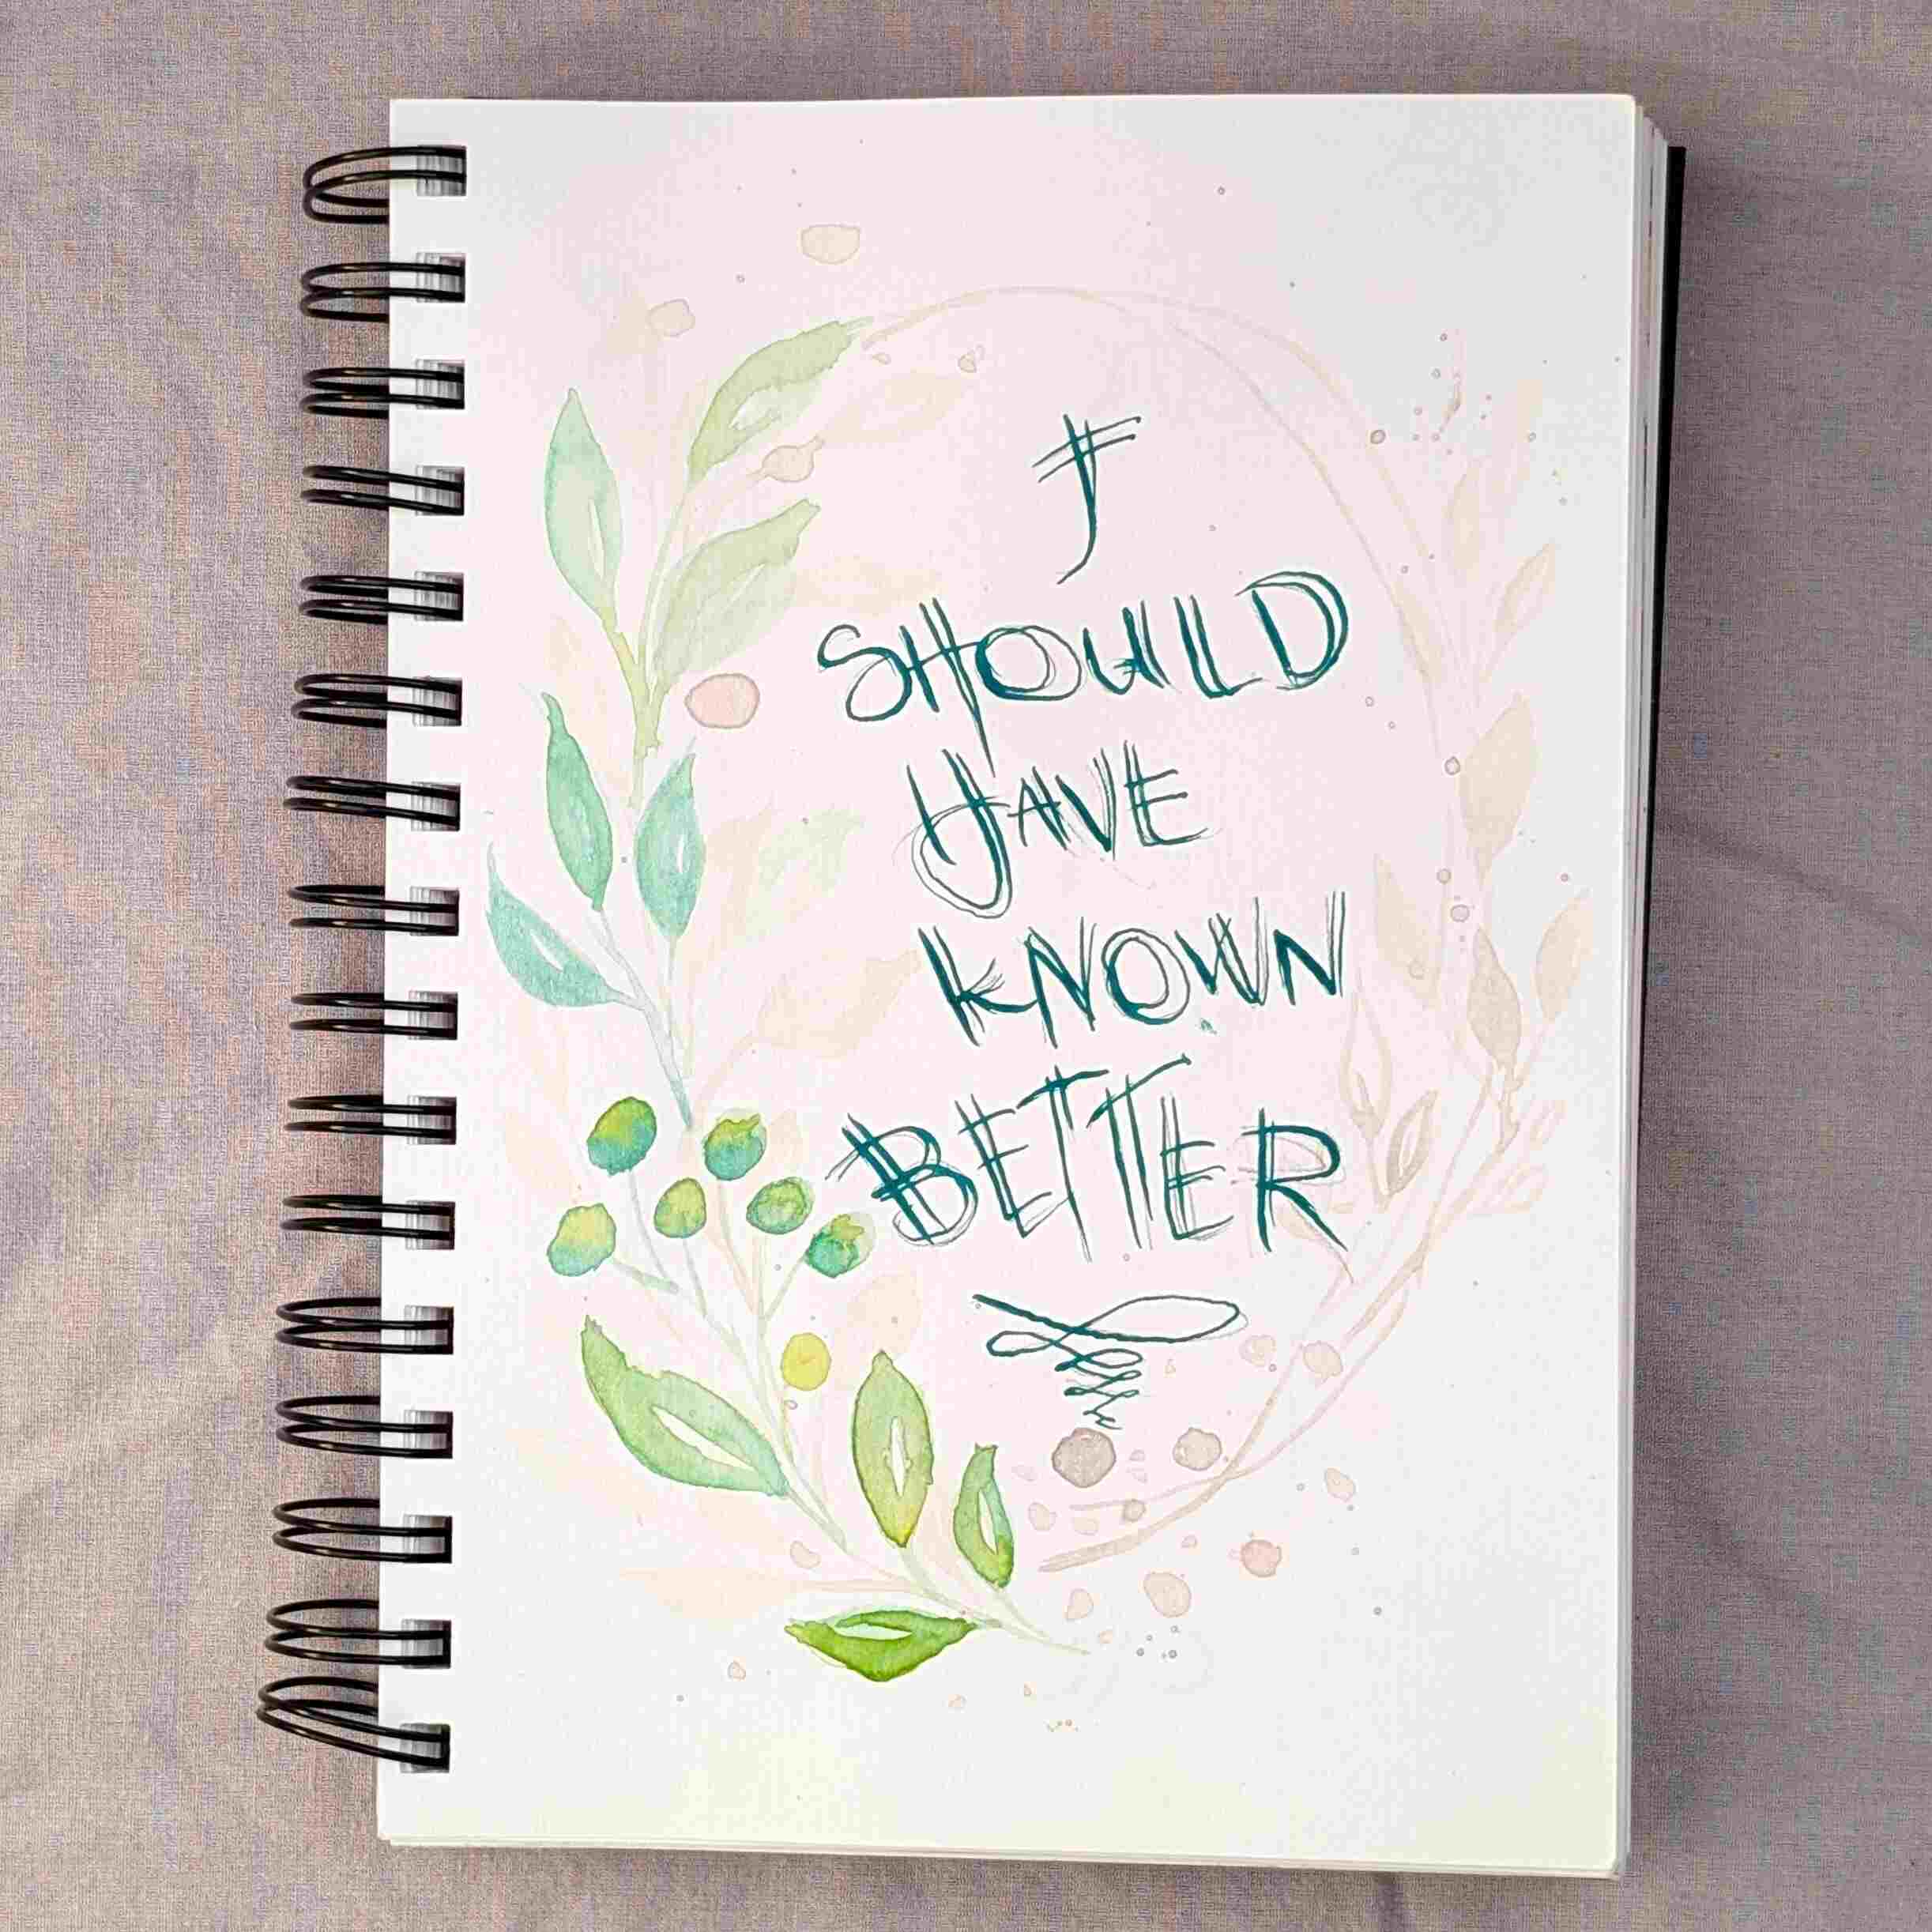 I
SHOULD
HAVE
KNOWN
BETTER